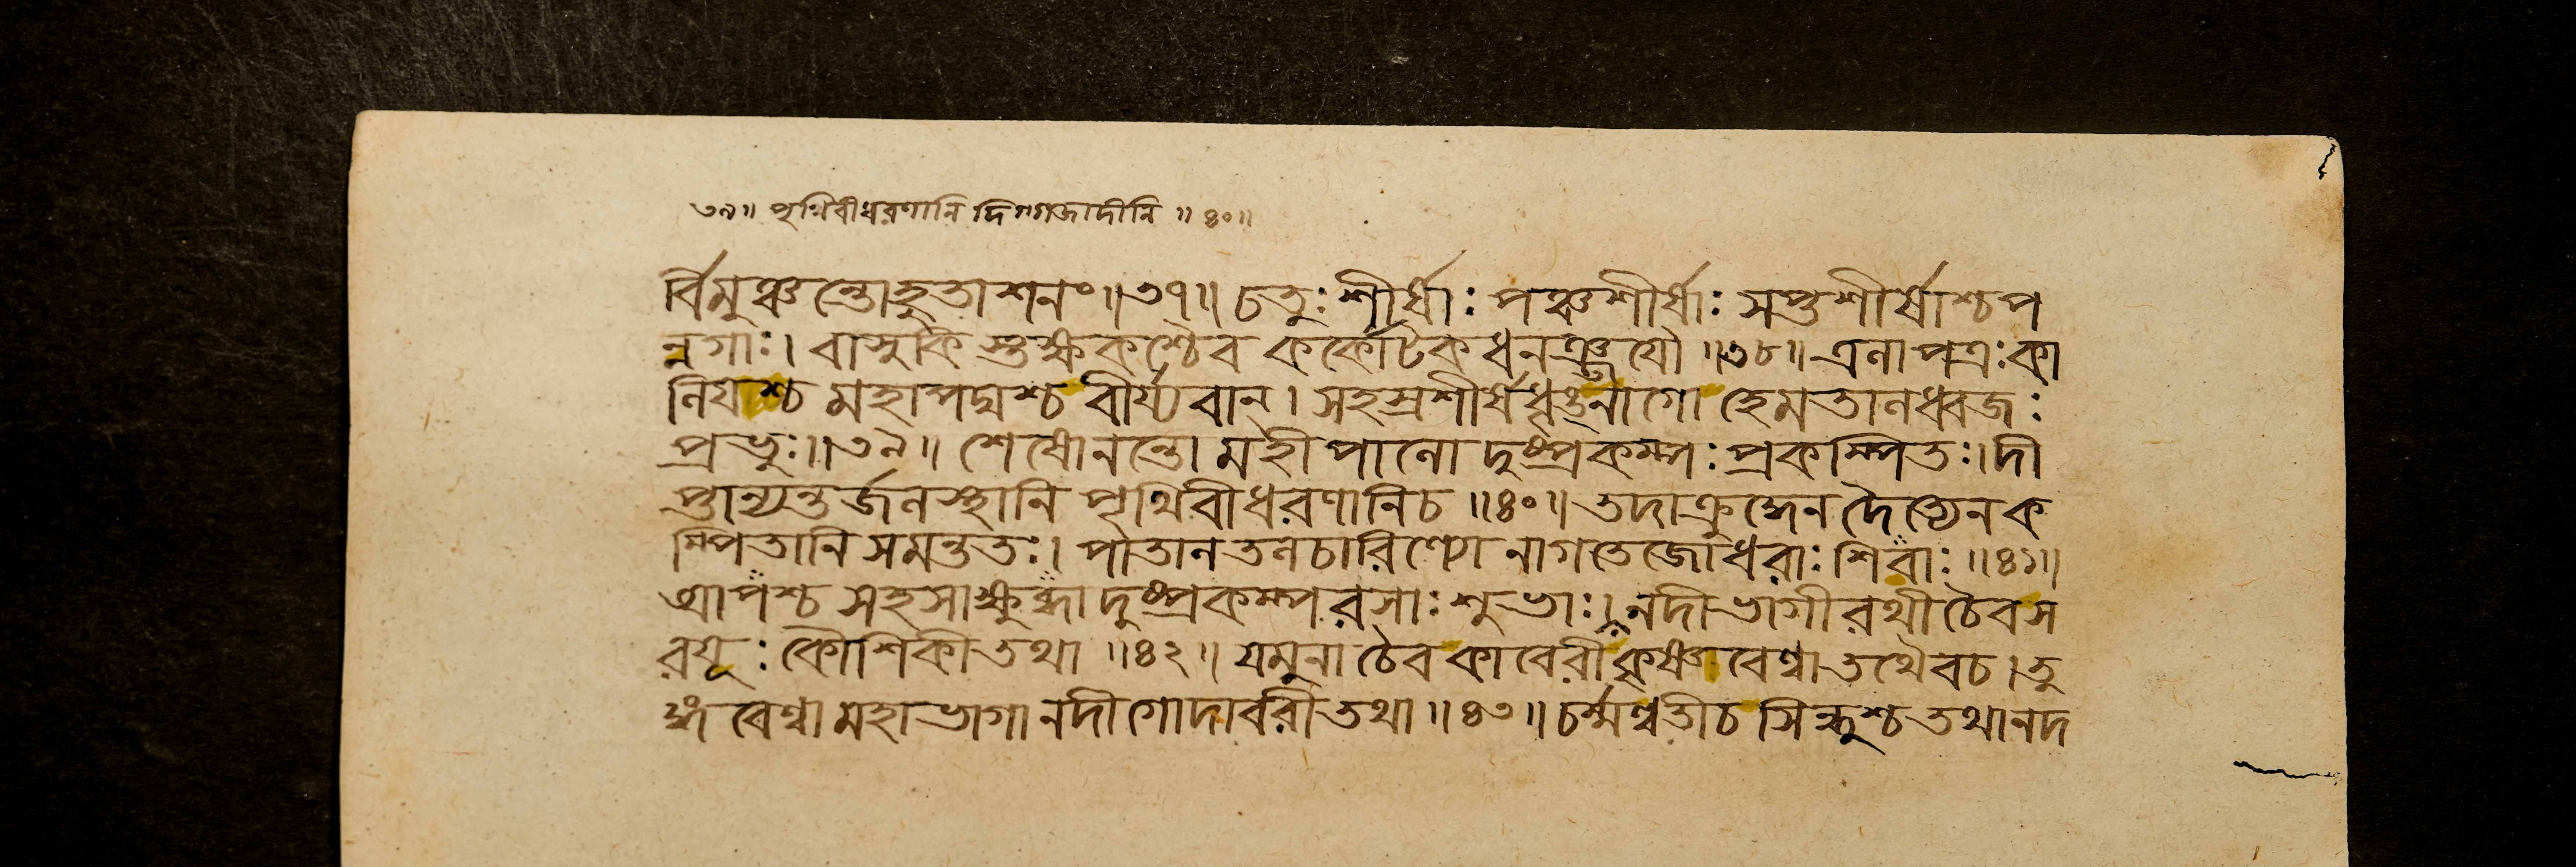 ৩৯॥ পৃথিবীধরণানি দিগ্গজাদীনি ॥ ৪০॥
র্বিমুঞ্চন্তোহুতাশনং॥৩৭॥ চতুঃশীর্ষাঃ পঞ্চশীর্ষাঃ সপ্তশীর্ষাশ্চপ
ন্নগাঃ। বাসুকিস্তক্ষকশ্চৈব কর্কোটকধনঞ্জয়ৌ ॥৩৮॥ এলাপত্রঃকা
লিয়শ্চ মহাপদ্মশ্চ বীর্য্যবান্। সহস্রশীর্ষধৃঙ্নাগো হেমতালধ্বজঃ
প্রভুঃ॥৩৯॥ শেষোনন্তো মহীপালো দুষ্প্রকম্পঃ প্রকম্পিতঃ।দী
প্তান্যন্তর্জলস্থানি পৃথিবীধরণানিচ ॥৪০॥ তদাক্রুদ্ধেন দৈত্যেনক
ম্পিতানি সমন্ততঃ। পাতালতলচারিণ্যো নাগতেজোধরাঃ শিবাঃ ॥৪১॥
আপশ্চ সহসাক্ষুব্ধা দুষ্প্রকম্পরসাঃ শুভাঃ। নদীভাগীরথীচৈবস
রযূঃ কৌশিকীতথা ॥৪২॥ যমুনা চৈব কাবেরী কৃষ্ণাবেণ্বা তথৈবচ।তু
ঙ্গবেণ্বা মহাভাগা নদী গোদাবরীতথা॥৪৩॥ চর্ম্মণ্বতীচ সিন্ধুশ্চ তথানদ